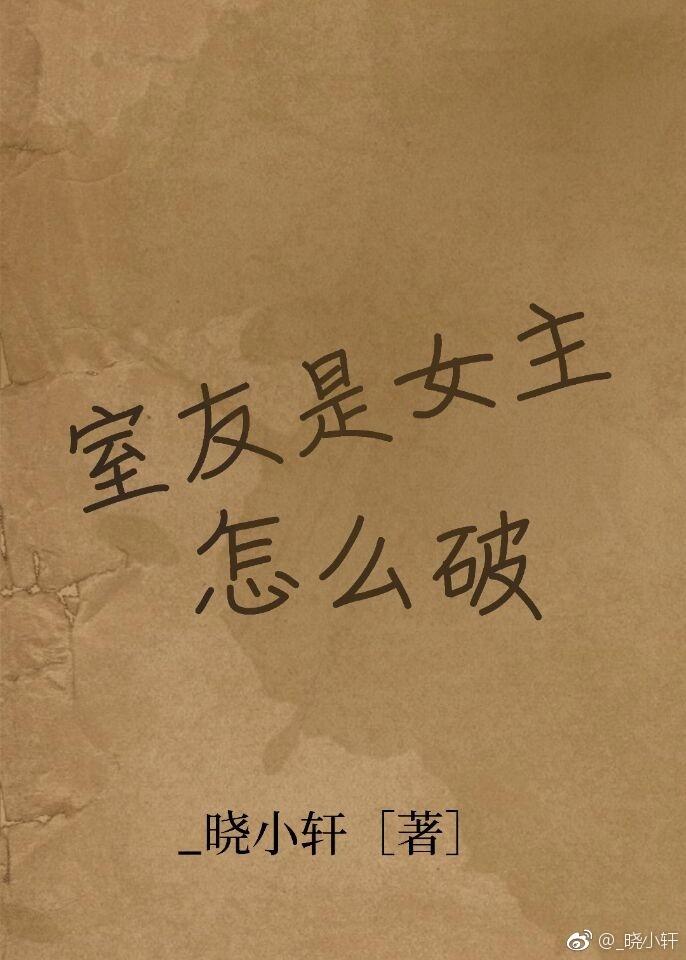 室友是女主
怎么破
_晓小轩［著］
@_晓小轩